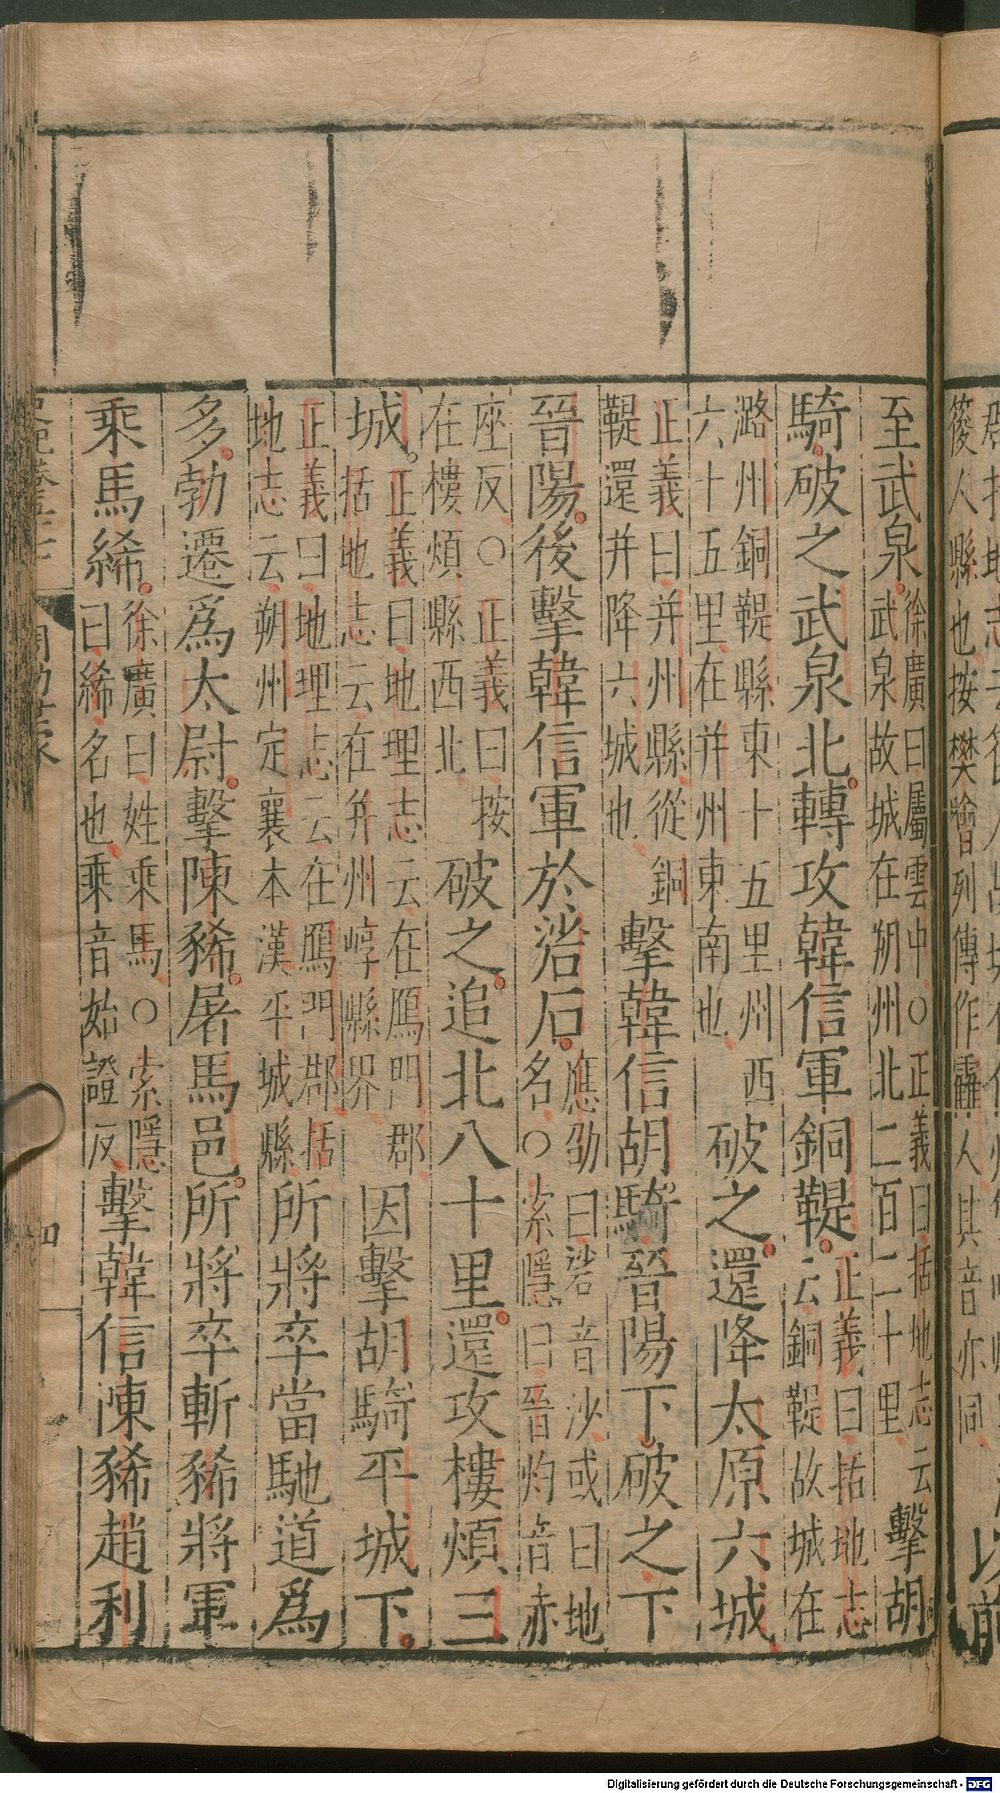 篌人縣也按樊噲列傳作靃人其音亦同
以前
至武泉徐廣曰屬雲中○正義曰括地志云武泉故城在朔州北二百二十里擊胡
騎破之武泉北轉攻韓信軍銅鞮正義曰括地志云銅鞮故城在
潞州銅鞮縣東十五里州西六十五里在并州東南也破之還降太原六城
正義曰并州縣從銅鞮還并降六城也擊韓信胡騎晉陽下破之下
晉陽後擊韓信軍於硰石應劭曰硰音沙或曰地名○索隱曰晉灼音赤
座反○正義曰按在樓煩縣西北破之追北八十里還攻樓煩三
城正義曰地理志云在鴈門郡括地志云在并州崞縣界因擊胡騎平城下
正義曰地理志云在鴈門郡括地志云朔州定襄本漢平城縣所將卒當馳道為
多勃遷為太尉擊陳豨屠馬邑所將卒斬豨將軍
乘馬絺徐廣曰姓乘馬○索隱曰絺名也乘音始證反擊韓信陳豨趙利
周勃世家
四
Digitalisierung gefördert durch die Deutsche Forschungsgemeinschaft - DFG